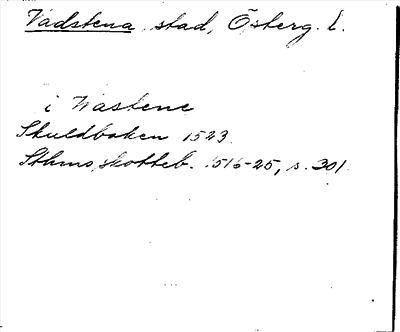 Vadstena stad, Österg. l.
i Wastene
Skuldboken 1523.
Sthms skotteb. 1516-25, s. 301